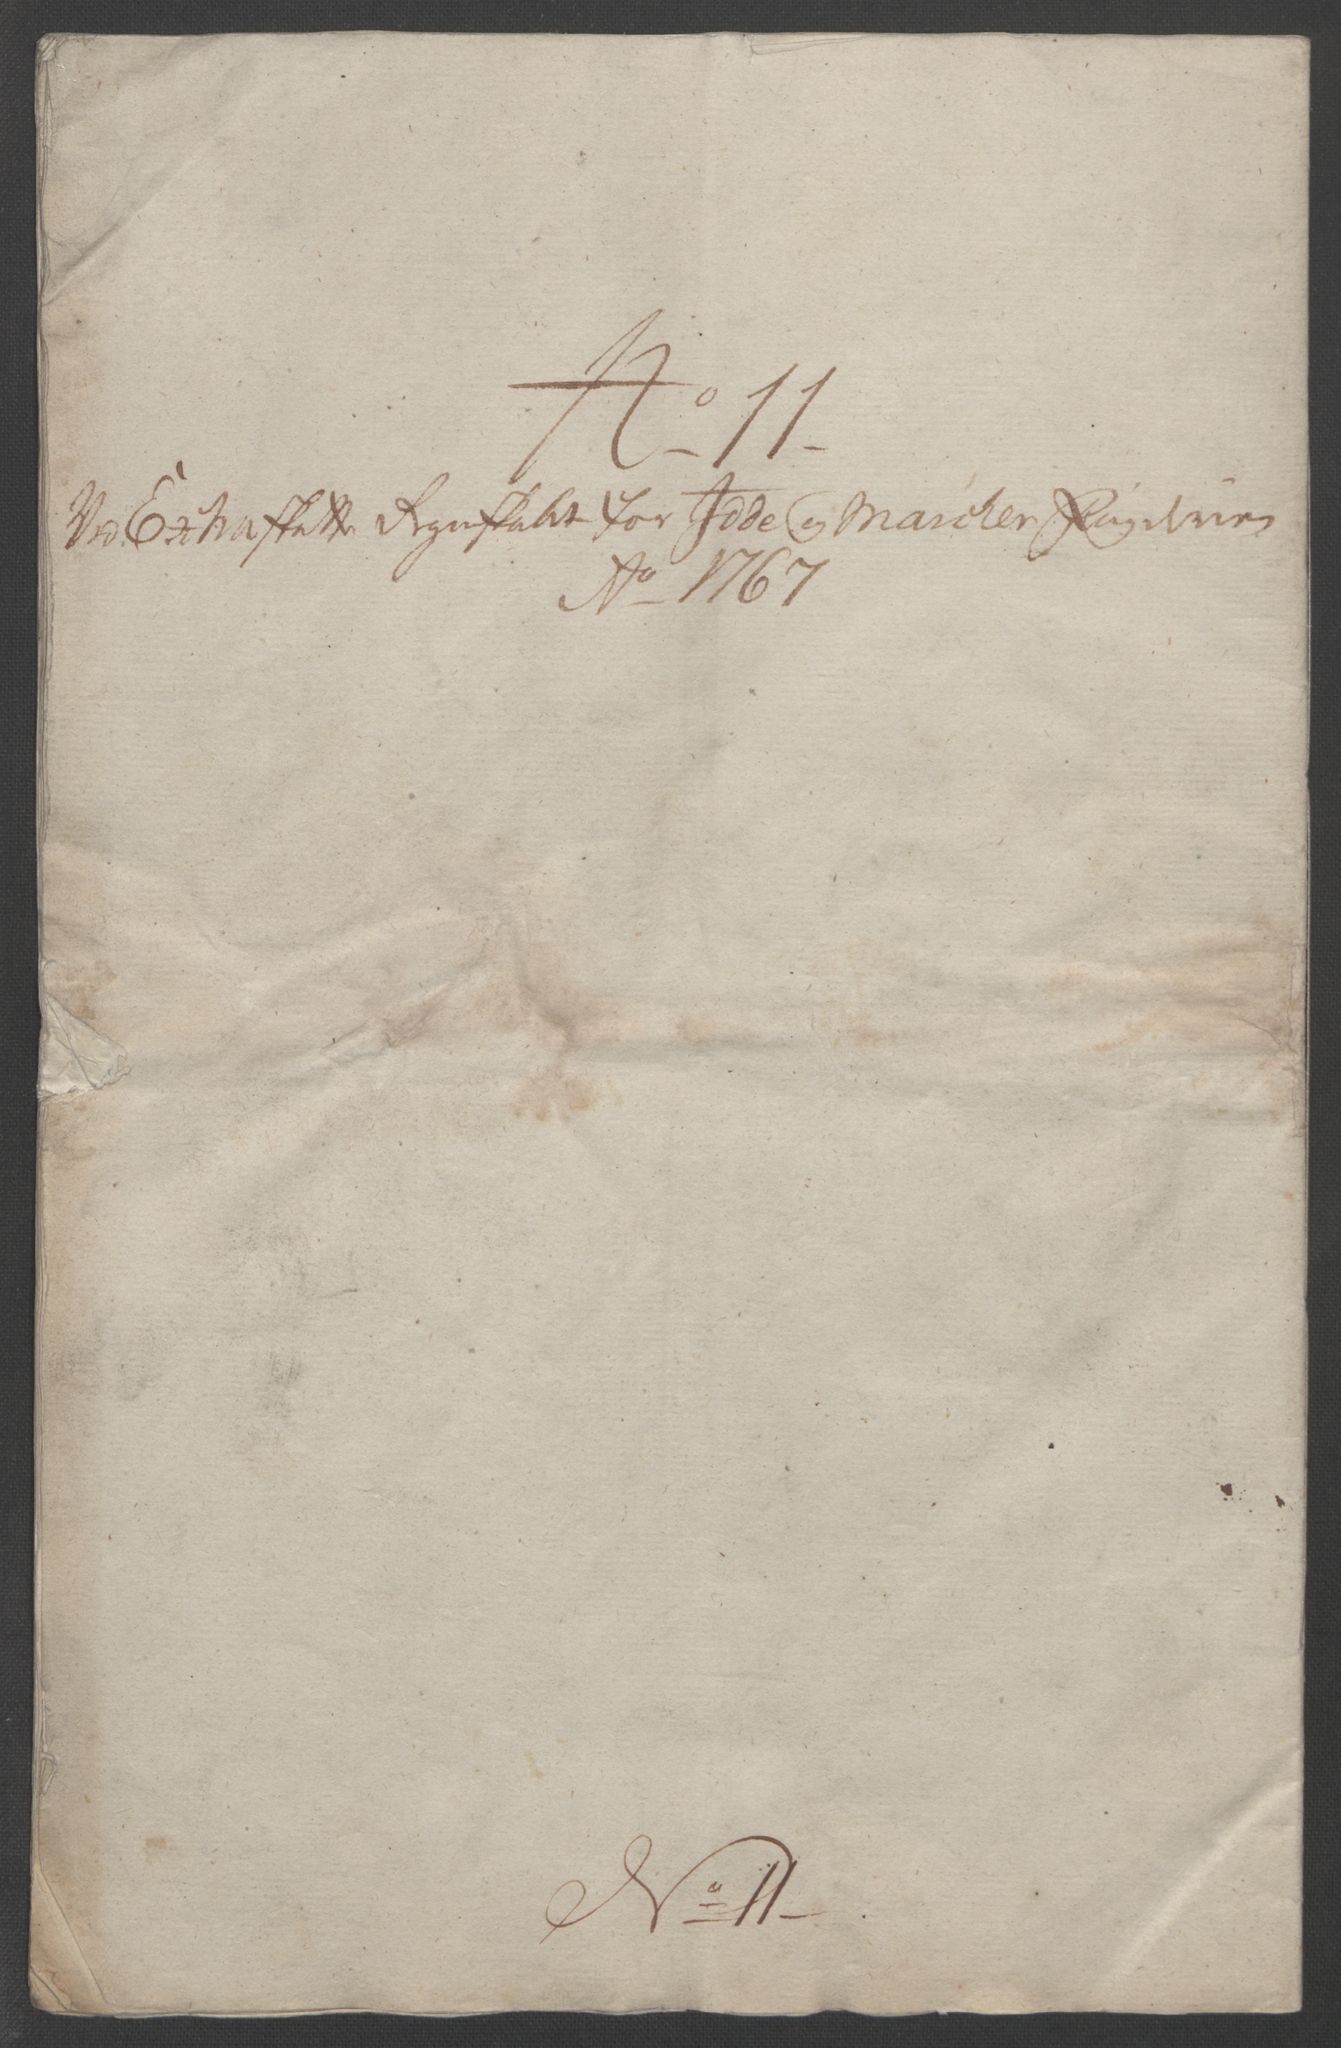 No 11
Ved Extraskatte Regnskabet for Idde og Marcker Fogderie
Ao 1767
No 11